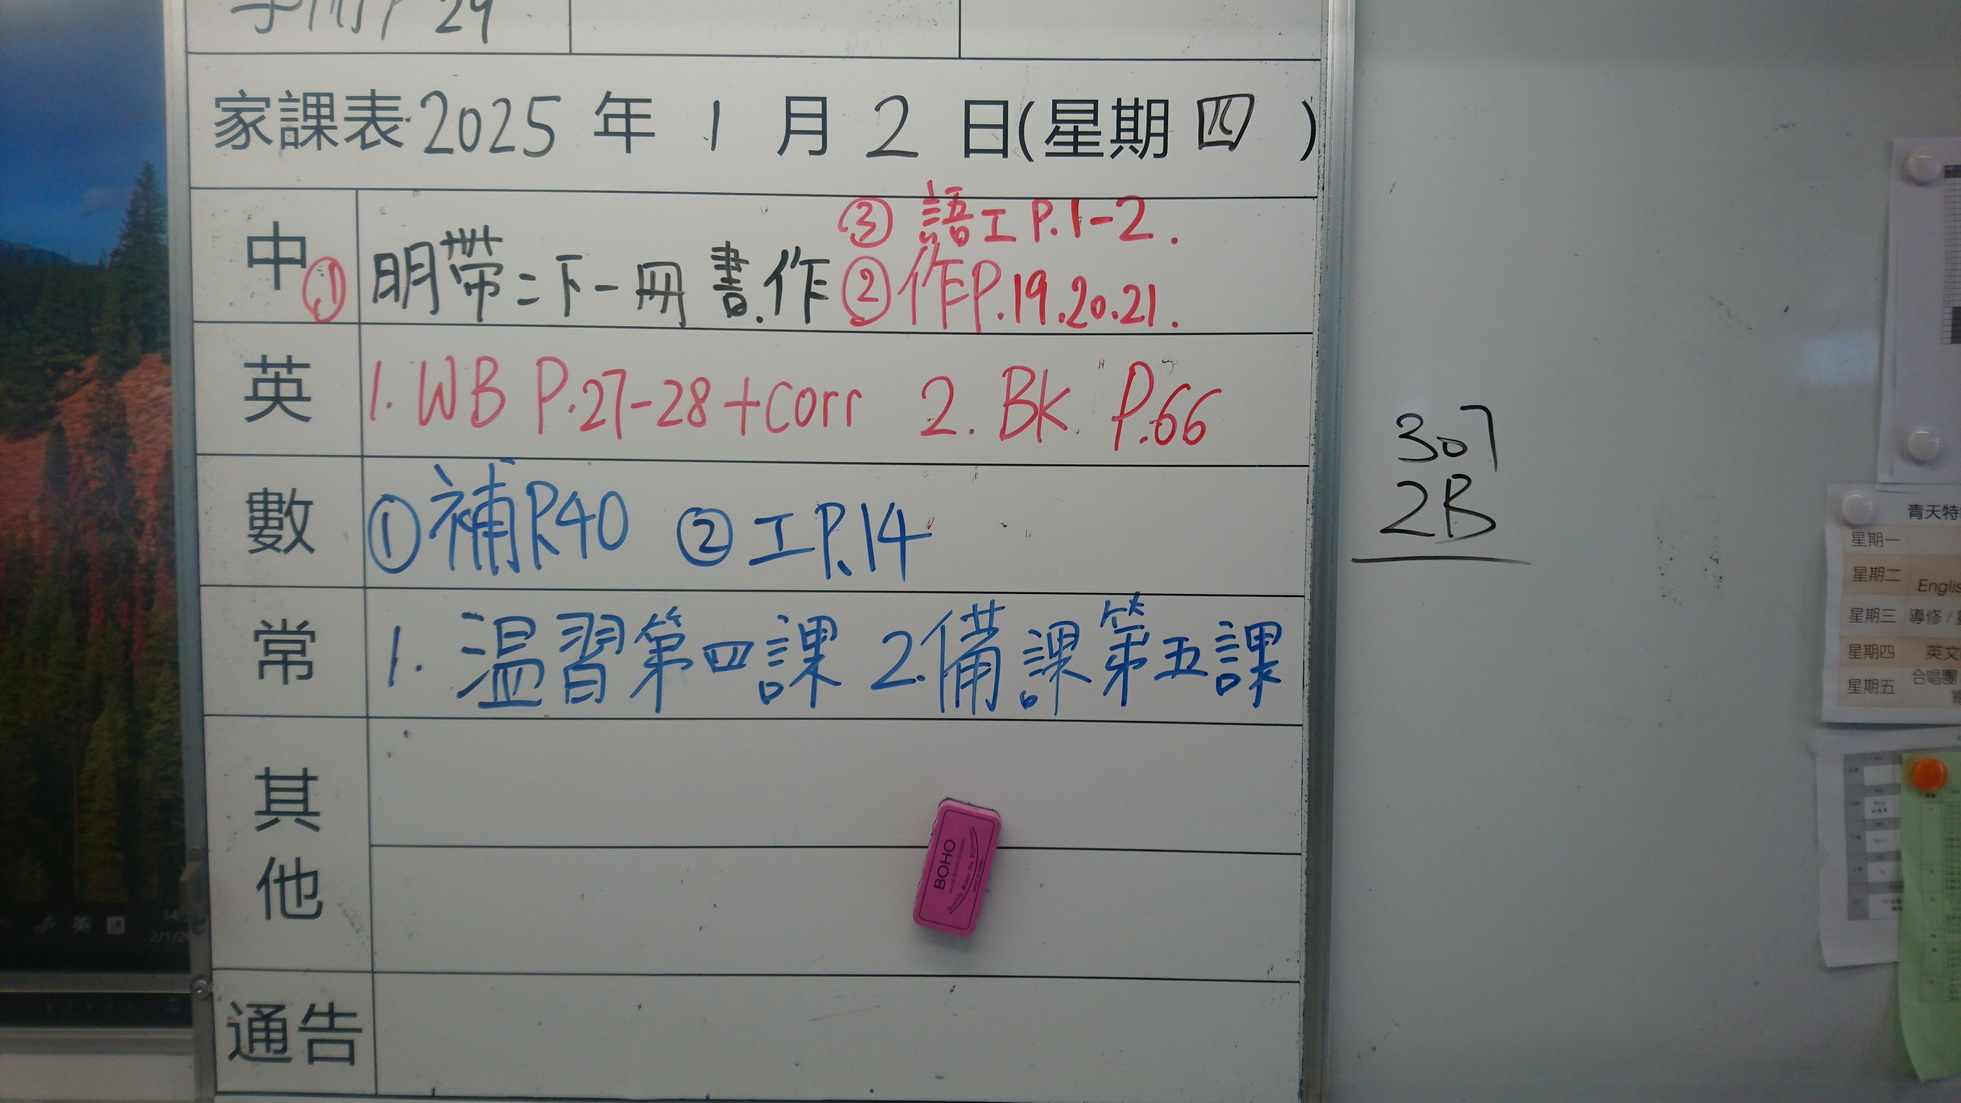 29
家課表 2025 年 1 月 2 日(星期 四 )
中 ① 明帶二下一冊書.作 ② 作P.19.20.21.
③ 語工P.1-2.
英 1. WB P.27-28+corr 2. Bk P.66
數 ①補P.40 ②工P.14
常 1. 温習第四課 2.備課第五課
其他
通告
BOHO
307
2B
青天特
星期一
星期二 Englis
星期三 導修 /
星期四 英文
星期五 合唱團
英